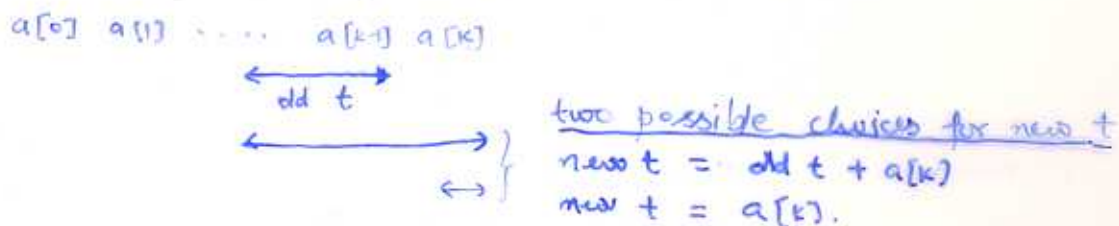 a[0] a[1] ..... a[k-1] a[k]
old t
two possible choices for new t
new t = old t + a[k]
new t = a[k].